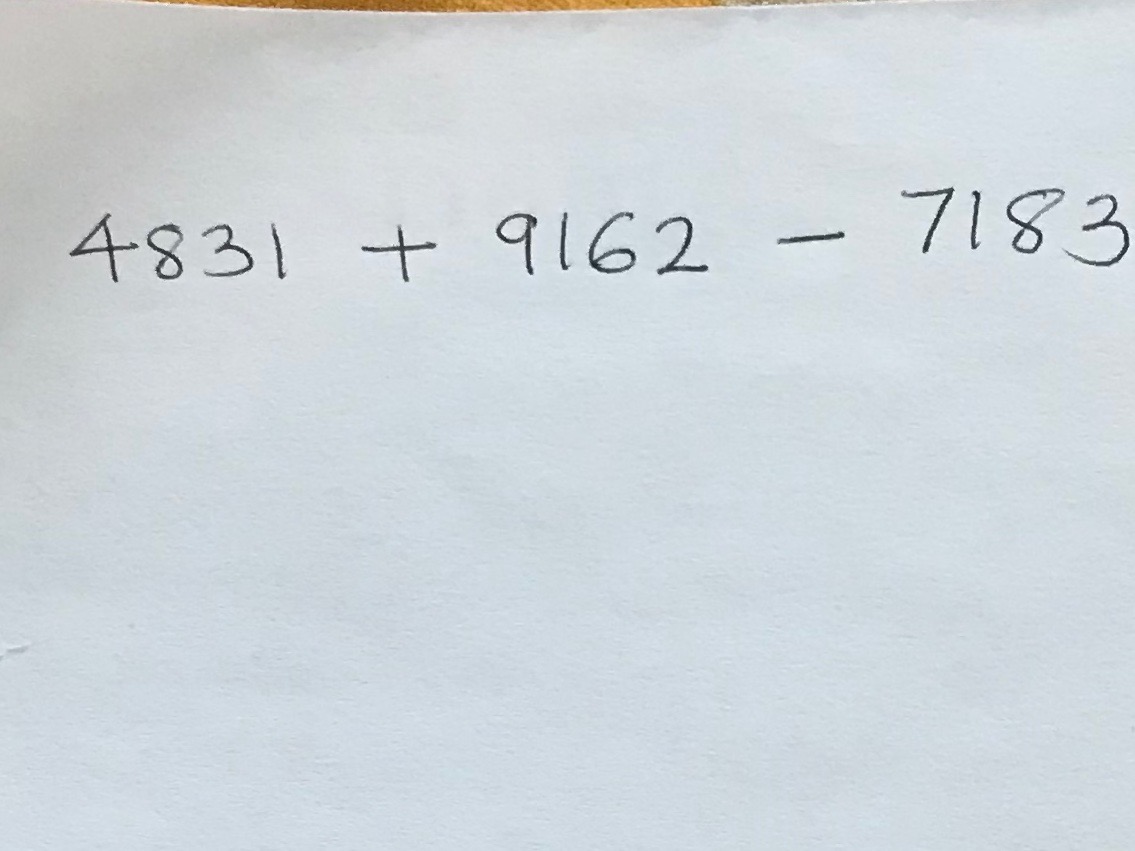 4831 + 9162 - 7183